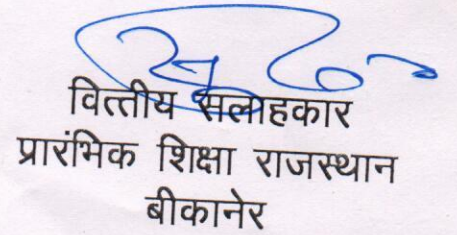 वित्तीय सलाहकार
प्रारंभिक शिक्षा राजस्थान
बीकानेर